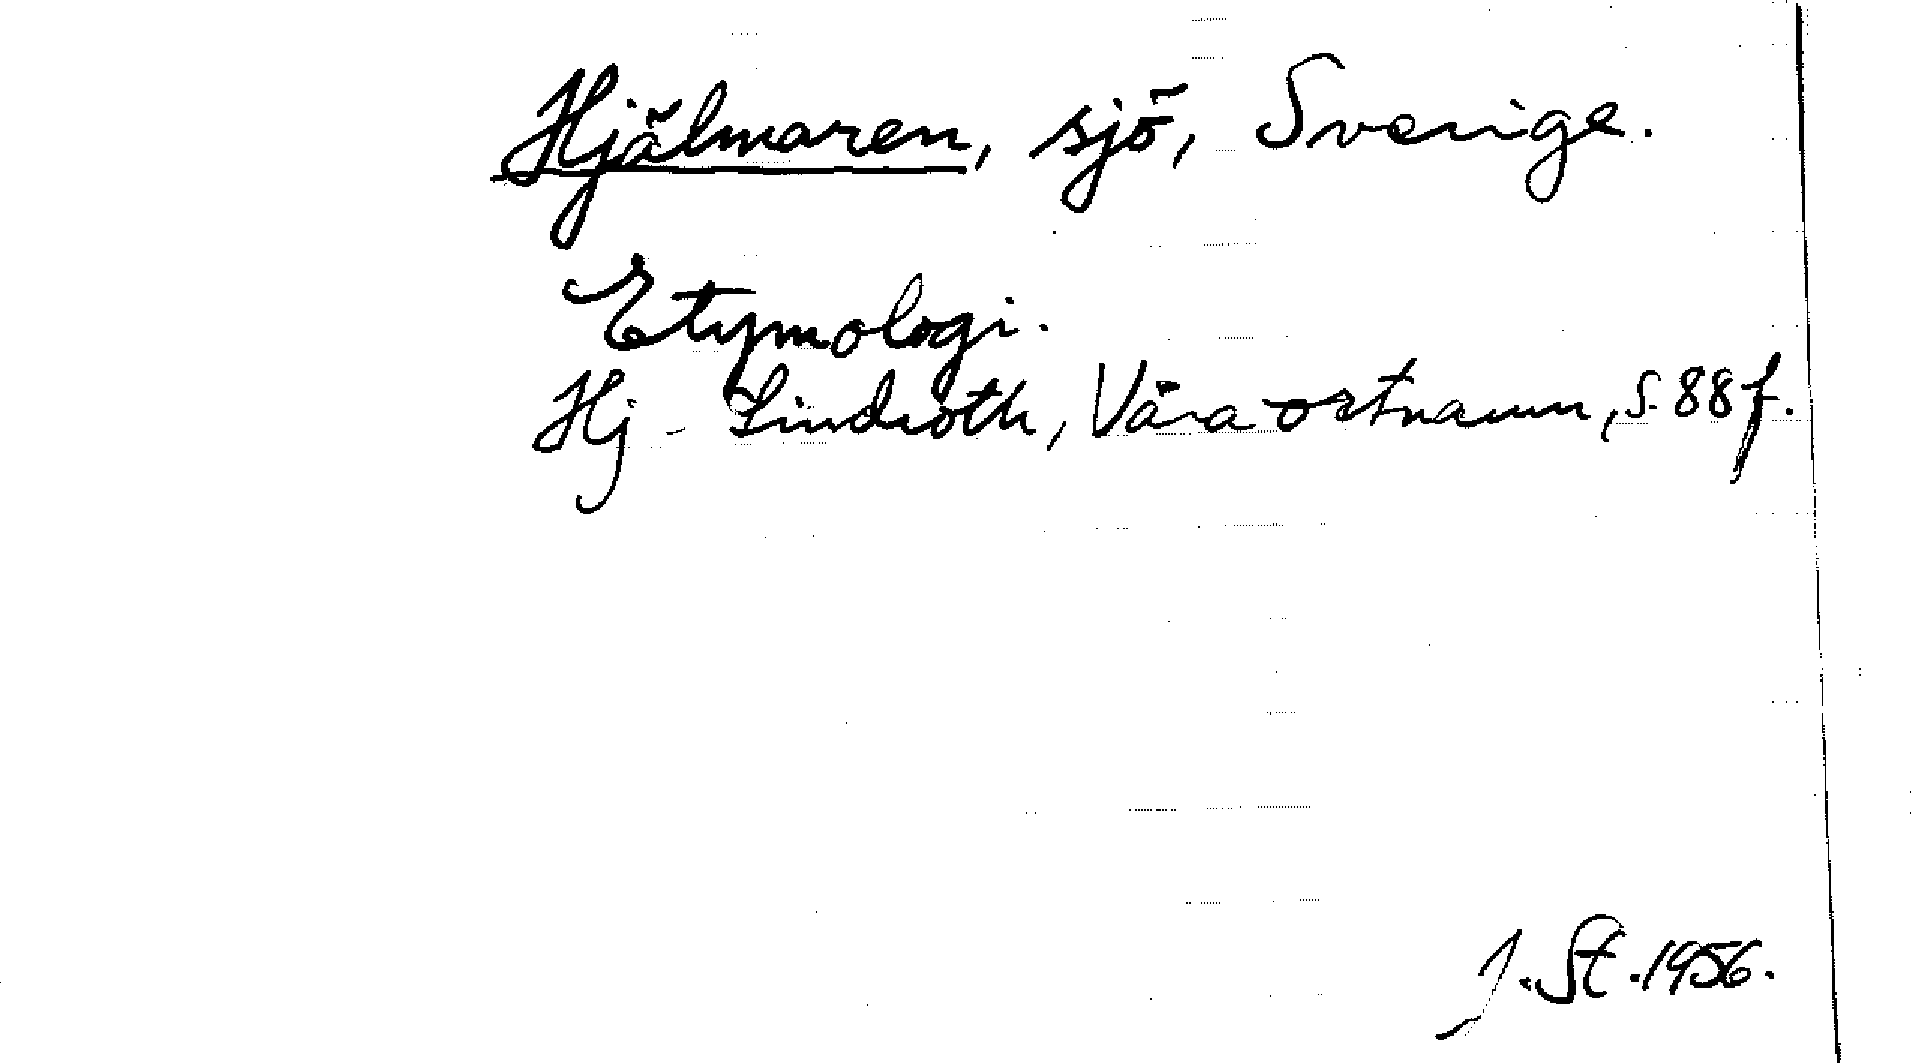 Hjälmaren, sjö, Sverige.
Etymologi.
Hj. Lindroth, Våra ortnamn, s. 88 f.
J. St. 1956.